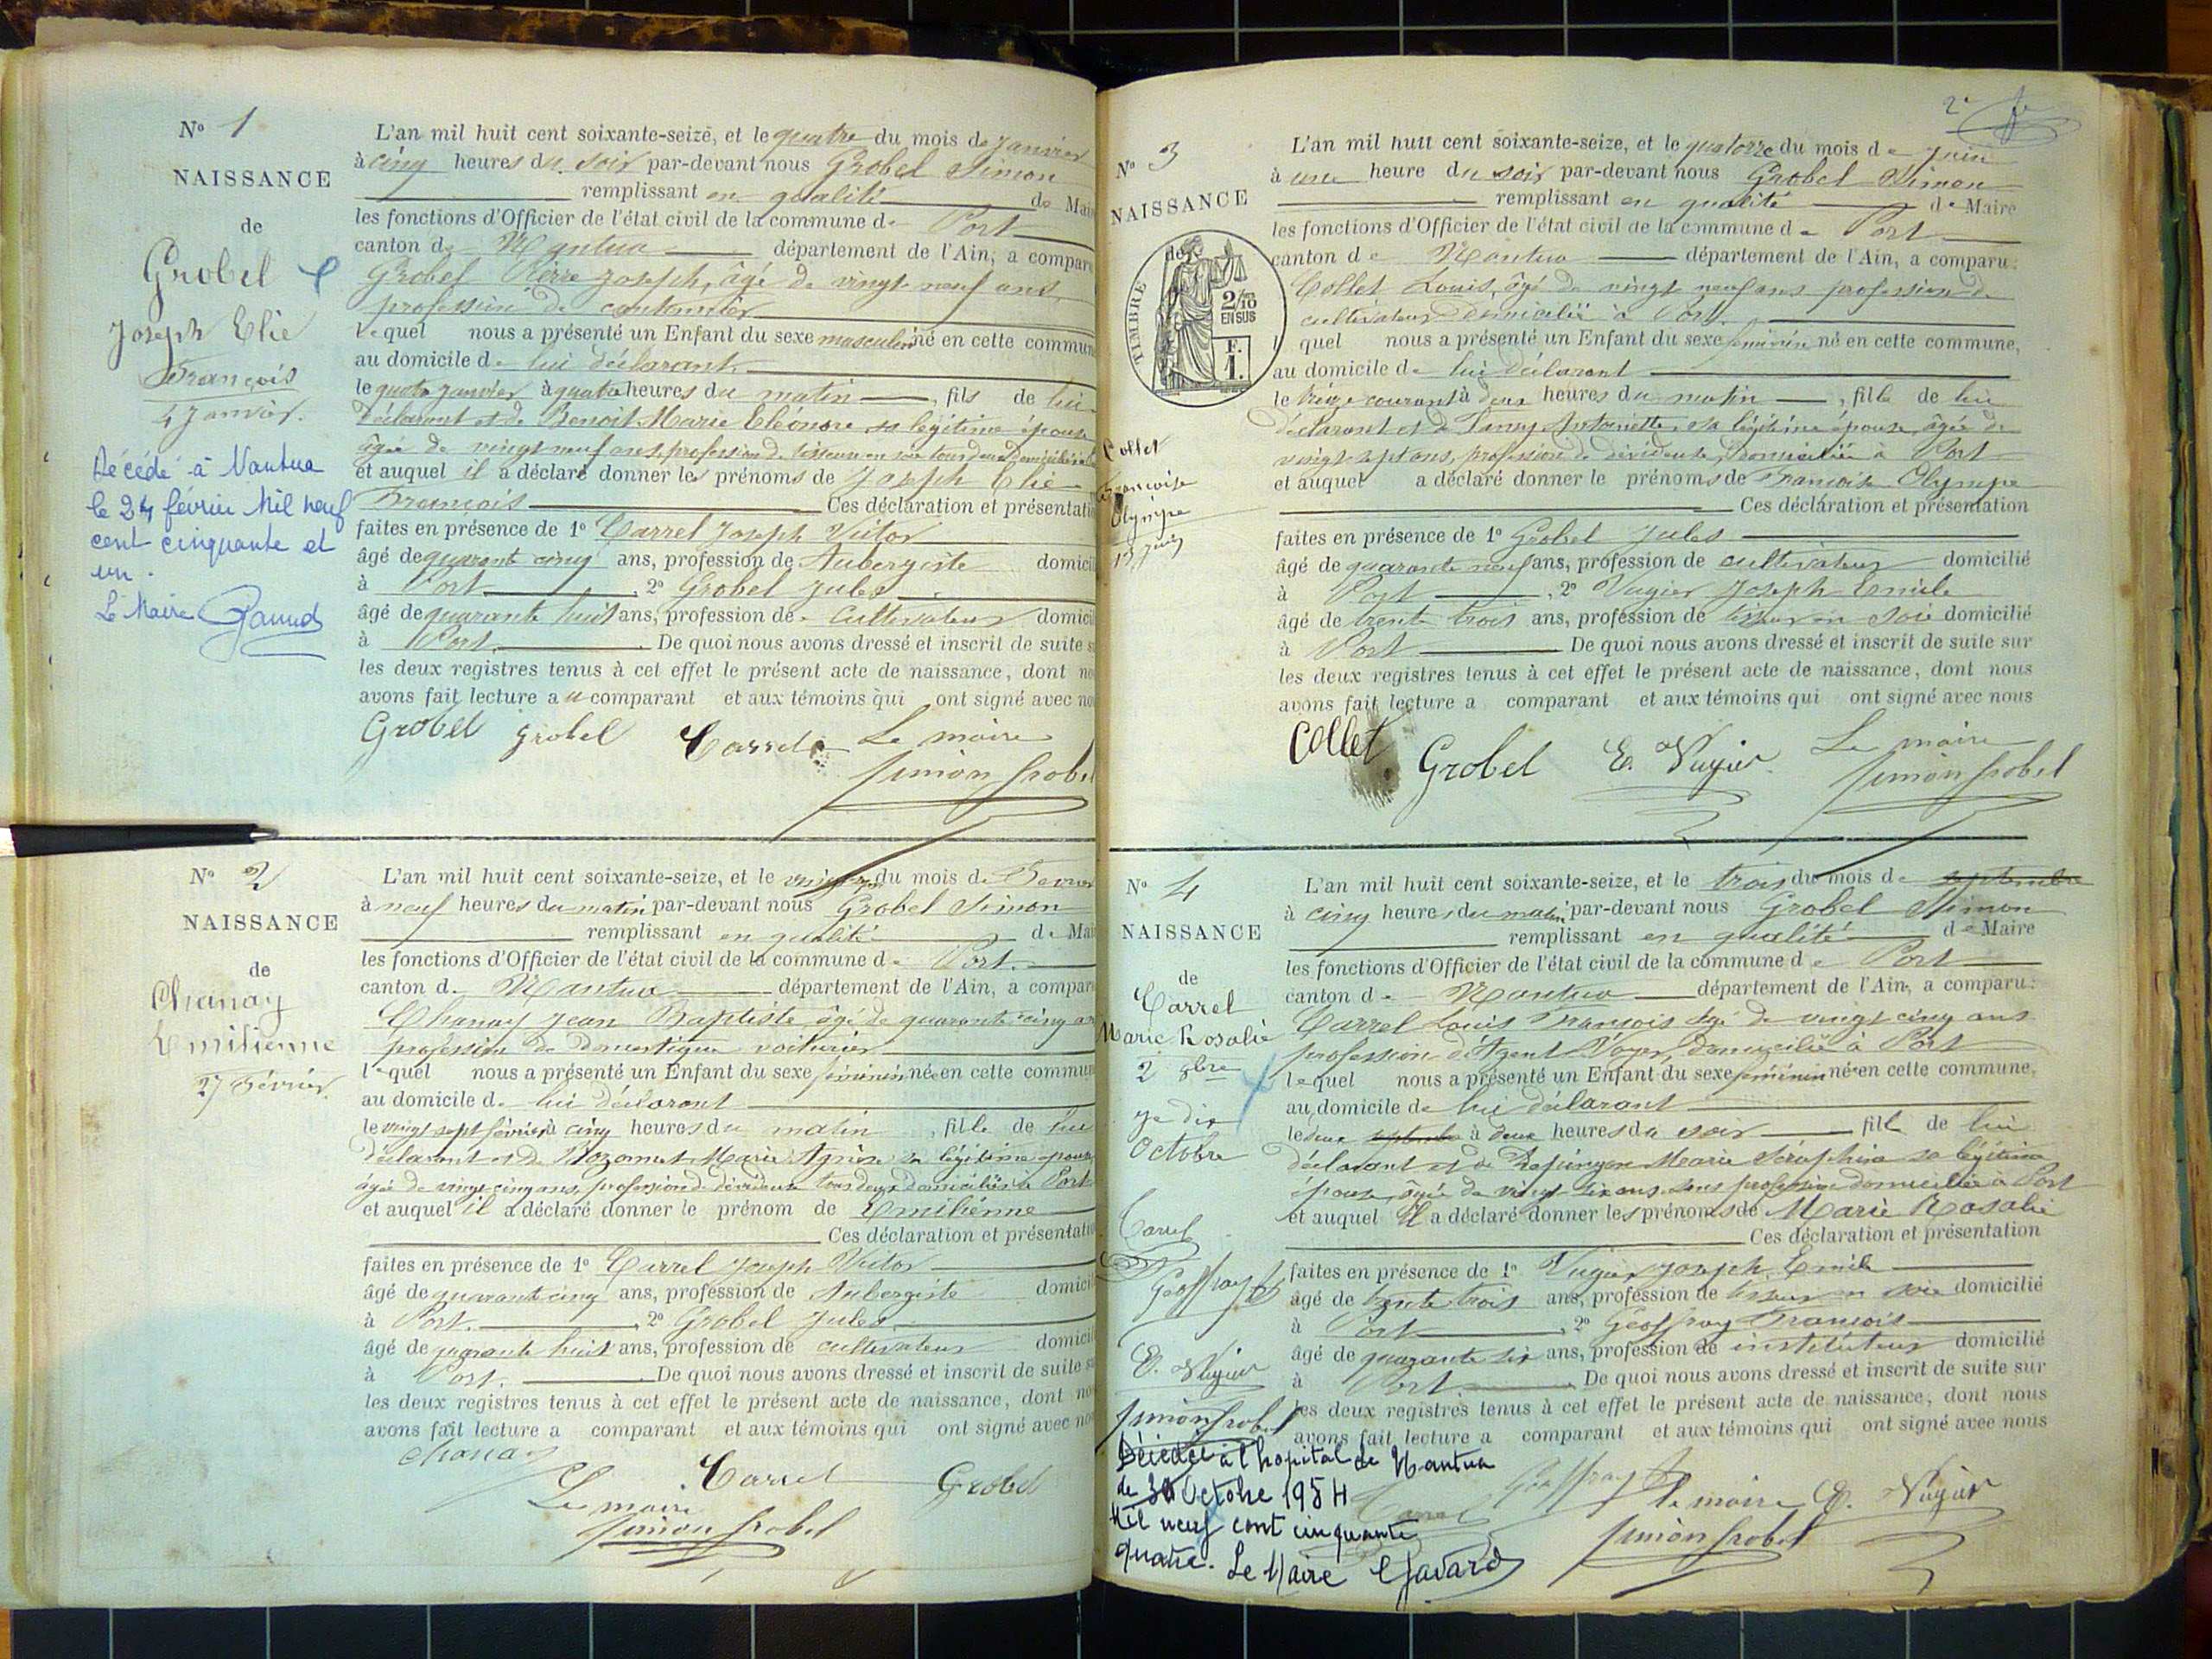 N° 1
NAISSANCE
de
Grobel
Joseph Elie
François
4 Janvier.
Décédé à Nantua
le 24 février Mil neuf
cent cinquante et
un.
Le Maire
L'an mil huit cent soixante-seize, et le quatre du mois de Janvier
à cinq heures du soir par-devant nous Grobel Simon
remplissant en qualité de Mai
les fonctions d'Officier de l'état civil de la commune de Port
canton de Nantua département de l'Ain, a compar
Grobel Pierre Joseph, âgé de vingt neuf ans,
profession de cantonnier
lequel nous a présenté un Enfant du sexe masculin né en cette commun
au domicile de lui déclarant
le quatre janvier à quatre heures du matin, fils de lui
déclarant et de Benoit Marie Eléonore sa légitime épouse
âgée de vingt neuf ans, profession de tisseuse en soie tous deux domiciliés
et auquel il a déclaré donner les prénoms de Joseph Elie
François Ces déclaration et présentati
faites en présence de 1° Carrel Joseph Victor
âgé de quarante cinq ans, profession de Aubergiste domicil
à Port, 2° Grobel Jules
âgé de quarante huit ans, profession de Cultivateur domicil
à Port. De quoi nous avons dressé et inscrit de suite s
les deux registres tenus à cet effet le présent acte de naissance, dont no
avons fait lecture au comparant et aux témoins qui ont signé avec no
Grobel Grobel Carrel Le maire
Simon Grobel
N° 2
NAISSANCE
de
Chanay
Emilienne
27 Février.
L'an mil huit cent soixante-seize, et le du mois de Fevrier
à neuf heures du matin par-devant nous Grobel Simon
remplissant en qualité de Mai
les fonctions d'Officier de l'état civil de la commune de Port.
canton de Nantua département de l'Ain, a compar
Chanay Jean Baptiste âgé de quarante cinq an
profession de Domestique voiturier
lequel nous a présenté un Enfant du sexe féminin née en cette commun
au domicile de lui déclarant
le vingt sept février à cinq heures du matin, fille de lui
déclarant et de Marie Agnès sa légitime épouse
âgée de vingt cinq ans, profession de dévideuse tous deux domiciliés à Port
et auquel il a déclaré donner le prénom de Emilienne
Ces déclaration et présentatio
faites en présence de 1° Carrel Joseph Victor
âgé de quarante cinq ans, profession de Aubergiste domicil
à Port. 2° Grobel Jules
âgé de quarante huit ans, profession de cultivateur domicil
à Port. De quoi nous avons dressé et inscrit de suite s
les deux registres tenus à cet effet le présent acte de naissance, dont no
avons fait lecture a comparant et aux témoins qui ont signé avec no
Chanay
Carrel Grobel
Le maire
Simon Grobel
2e
N° 3
NAISSANCE
de
TIMBRE
2/10
EN SUS
F.
1.
Collet
Françoise
Olympe
13 Juin
L'an mil huit cent soixante-seize, et le quatorze du mois de Juin
à une heure du soir par-devant nous Grobel Simon
remplissant en qualité de Maire
les fonctions d'Officier de l'état civil de la commune de Port
canton de Nantua département de l'Ain, a comparu:
Collet Louis, âgé de vingt neuf ans profession de
cultivateur domicilié à Port.
l quel nous a présenté un Enfant du sexe féminin né en cette commune,
au domicile de lui déclarant
le treize courant à deux heures du matin, fille de lui
déclarant et de Antoinette, sa légitime épouse, âgée de
vingt sept ans, profession de dévideuse, domiciliée à Port
et auquel a déclaré donner le prénoms de Françoise Olympe
Ces déclaration et présentation
faites en présence de 1° Grobel Jules
âgé de quarante neuf ans, profession de cultivateur domicilié
à Port, 2° Vugier Joseph Emile
âgé de trente trois ans, profession de tisseur en soie domicilié
à Port De quoi nous avons dressé et inscrit de suite sur
les deux registres tenus à cet effet le présent acte de naissance, dont nous
avons fait lecture a comparant et aux témoins qui ont signé avec nous
Collet Grobel E. Vugier Le maire
Simon Grobel
N° 4
NAISSANCE
de
Carrel
Marie Rosalie
2 8bre
je dis
Octobre
Carrel
Geoffray
E. Vugier
Simon Grobel
L'an mil huit cent soixante-seize, et le trois du mois de septembre
à cinq heures du matin par-devant nous Grobel Simon
remplissant en qualité de Maire
les fonctions d'Officier de l'état civil de la commune de Port
canton de Nantua département de l'Ain, a comparu:
Carrel Louis François âgé de vingt cinq ans
profession d'Agent Voyer, domicilié à Port
lequel nous a présenté un Enfant du sexe féminin née en cette commune,
au domicile de lui déclarant
le deux septembre à deux heures du soir fille de lui
déclarant et de Marie Séraphine sa légitime
épouse, âgée de vingt six ans sans profession domiciliée à Port
et auquel il a déclaré donner les prénoms de Marie Rosalie
Ces déclaration et présentation
faites en présence de 1° Vugier Joseph Emile
âgé de trente trois ans, profession de tisseur en soie domicilié
à Port, 2° Geoffray François
âgé de quarante six ans, profession de instituteur domicilié
à Port. De quoi nous avons dressé et inscrit de suite sur
les deux registres tenus à cet effet le présent acte de naissance, dont nous
avons fait lecture a comparant et aux témoins qui ont signé avec nous
Décédée à l'hopital de Nantua
le 30 Octobre 1954
Mil neuf cent cinquante
quatre. Le Maire
Carrel Geoffray Le maire E. Vugier
Simon Grobel